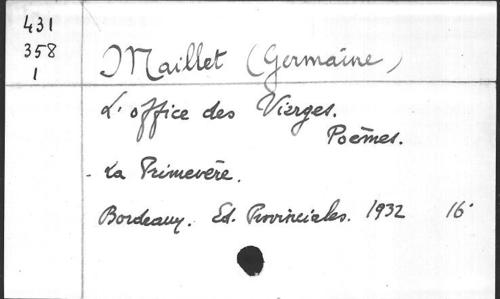 431
358
1
Maillet (Germaine)
L'office des Vierges.
Poēmes.
- La Primevère.
Bordeaux. Ed. Provinciales. 1932 16°